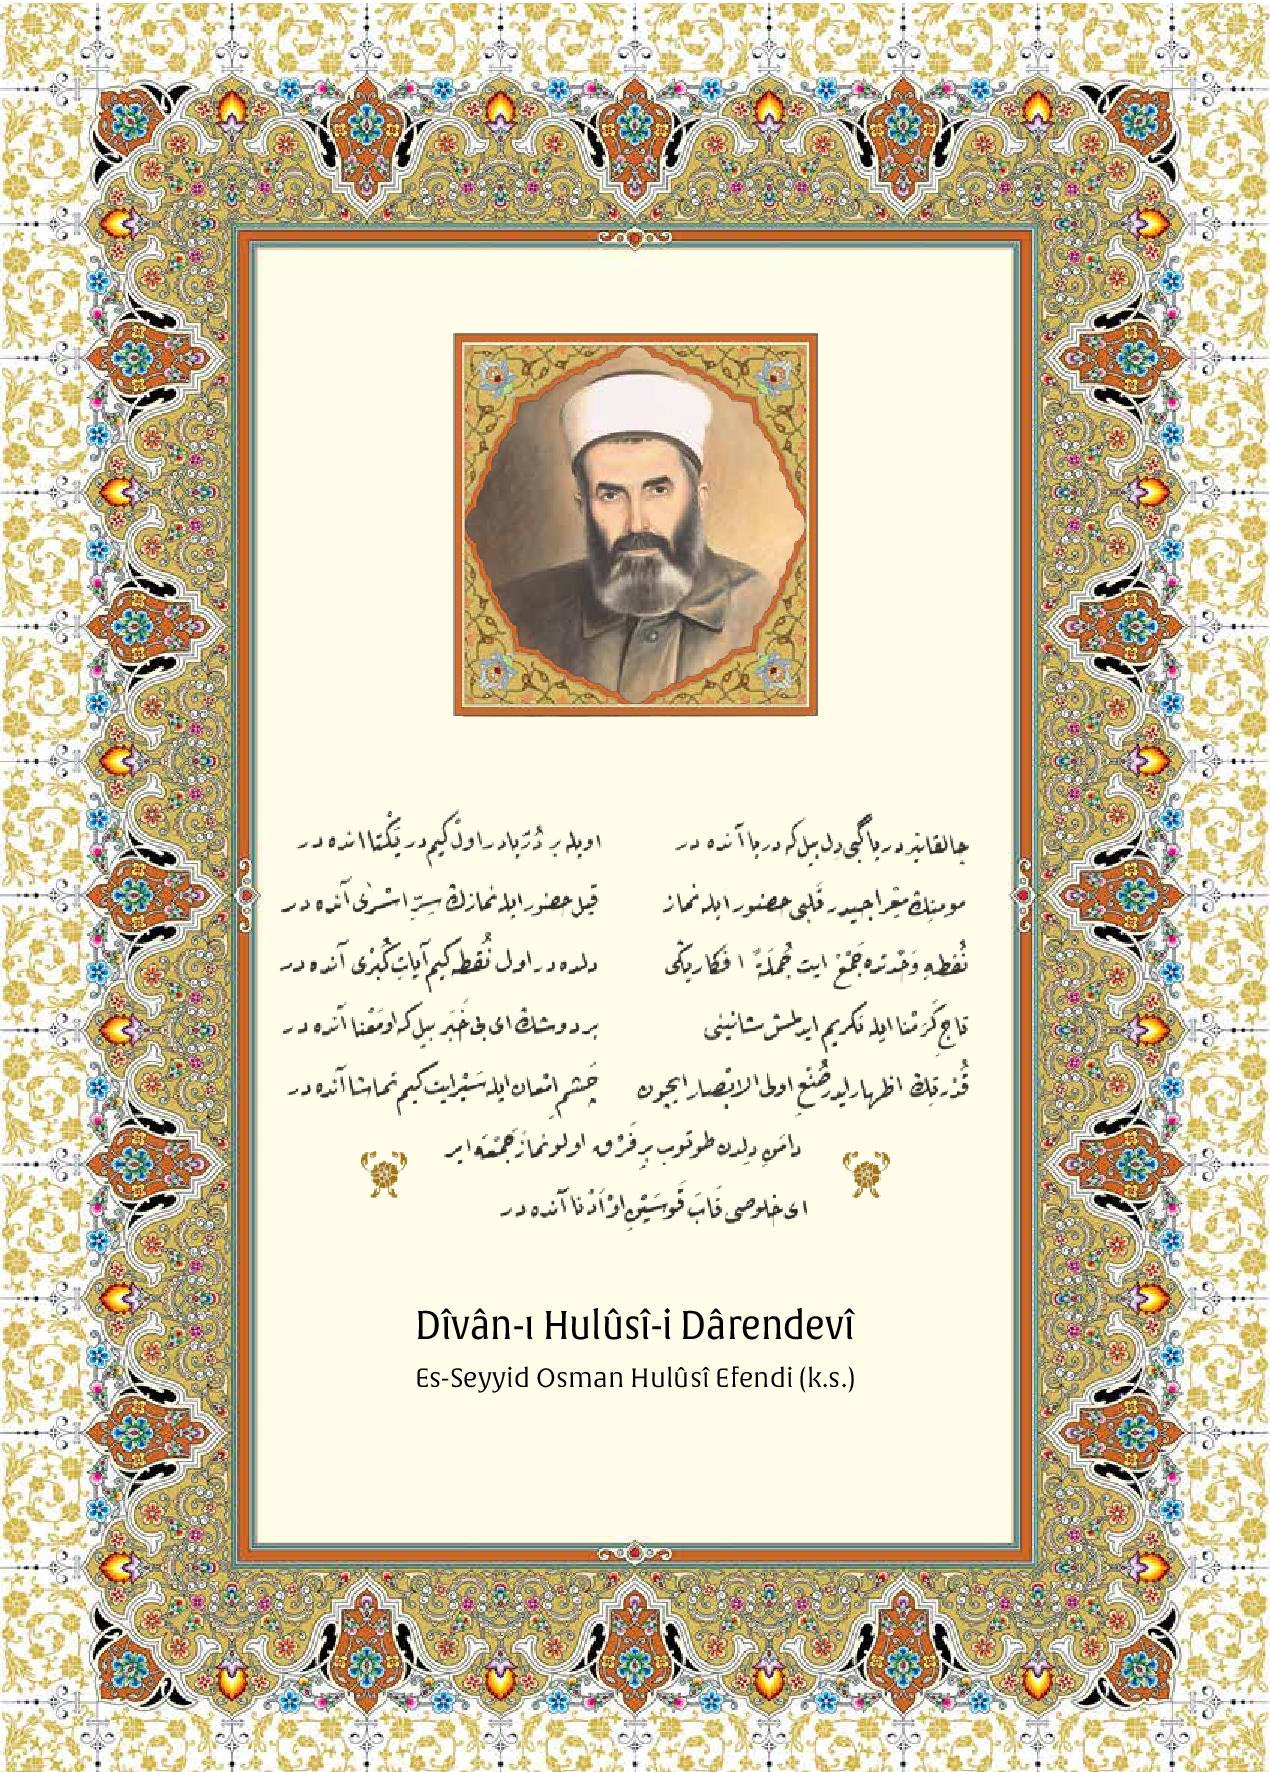 چالقانیر دریا گبی دل بیل که دریا آنده در اویله بر دُرّ یادر اولْ کیم در یَکْتا آنده در
مومنِڭ مِعْراجیدر قَلبی حضور ایله نماز قیل حضور ایله نمازڭ سِرِّ اسْرٰی آنده در
نُقطهٔ وَحْدتده جَمْعْ ایت جُملَهٔ افکاریڭی دلده در اول نُقطه کیم آیاتِ کُبْرٰی آنده در
تاجِ کَرَّمْنا ایله تکریم ایرلمش شانینی بردوشڭ ای بی خَبَر بیل که او مَعْنا آنده در
قُدْرتِڭ اظهار ایدر صُنْعِ اولی الابْصار ایچون چَشمِ امْعان ایله سَیْرایت کیم تماشا آنده در
دامَنِ دِلدن طوتوب بِر فَرْق اولو نماز جَمْعَه ایر
ای خلوصی قَابَ قَوسَیْنِ اوْ اَدْنا آنده در
Dîvân-ı Hulûsî-i Dârendevî
Es-Seyyid Osman Hulûsî Efendi (k.s.)